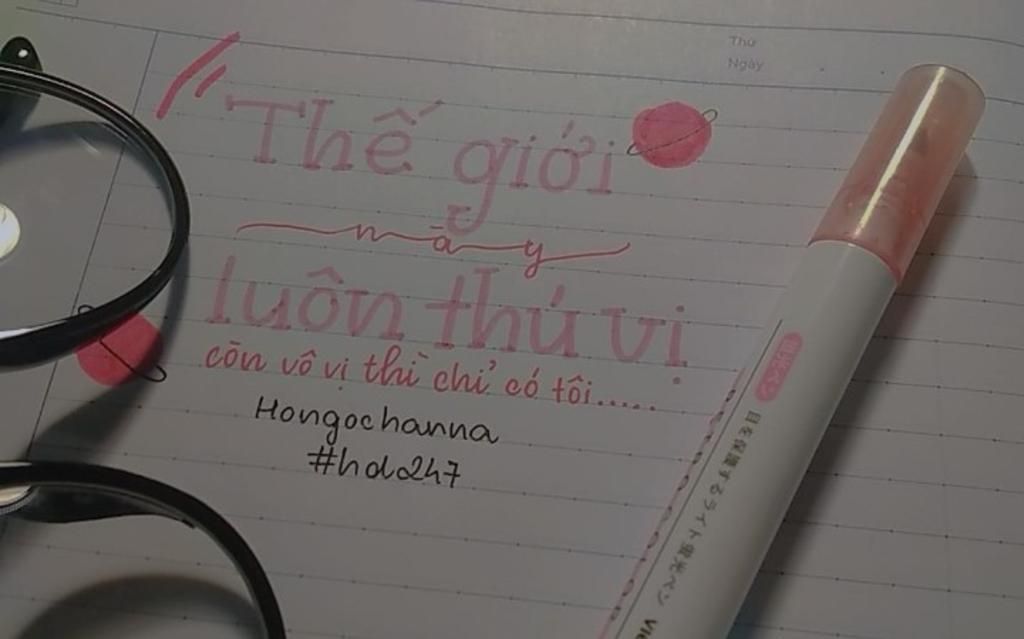 Thứ
Ngày
Thế giới
này
luôn thú vị
còn vô vị thì chỉ có tôi.....
Hongochanna
#hda247
目を保護するライト蛍光ペン